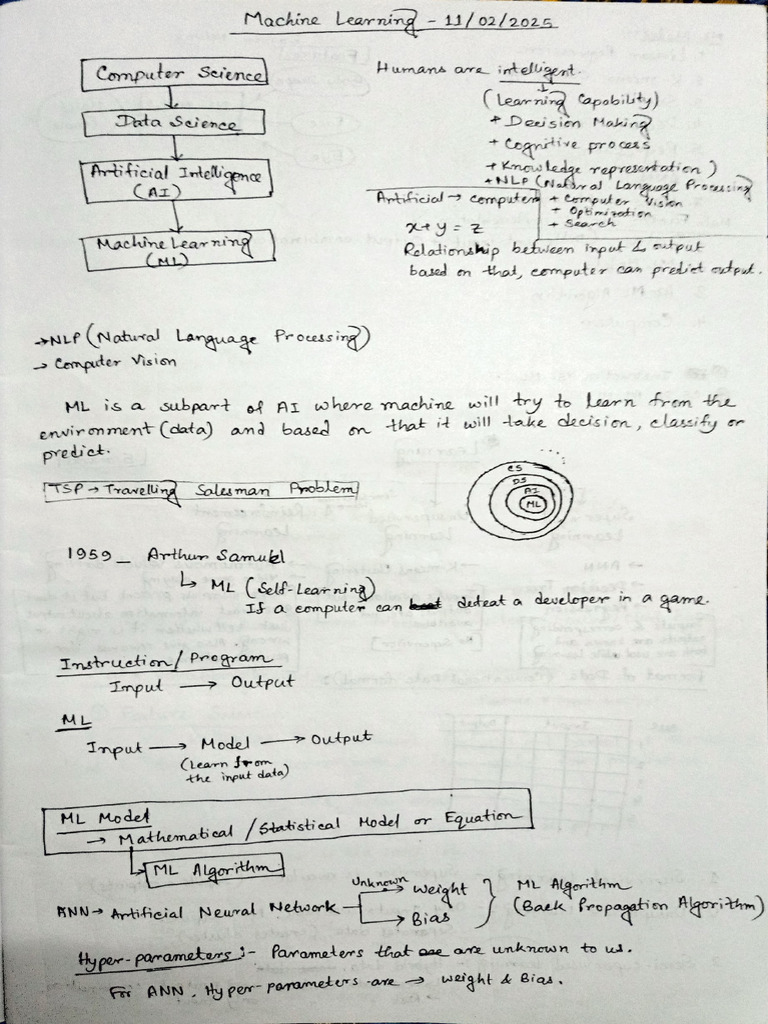 Machine Learning - 11/02/2025
Computer Science
Data Science
Artificial Intelligence
(AI)
Machine Learning
(ML)
Humans are intelligent.
(Learning Capability)
+ Decision Making
+ Cognitive process
+ Knowledge representation)
+ NLP (Natural Language Processing
+ Computer Vision
+ Optimization
+ Search
Artificial → computer
x+y = z
Relationship between input & output
based on that, computer can predict output.
→ NLP (Natural Language Processing)
→ Computer Vision
ML is a subpart of AI where machine will try to learn from the
environment (data) and based on that it will take decision, classify or
predict.
TSP → Travelling Salesman Problem
CS
DS
AI
ML
1959 - Arthur Samuel
↳ ML (Self-Learning)
If a computer can defeat a developer in a game.
Instruction/Program
Input → Output
ML
Input → Model → Output
(Learn from
the input data)
ML Model
→ Mathematical/Statistical Model or Equation
ML Algorithm
ANN → Artificial Neural Network
Unknown
Weight
Bias
ML Algorithm
(Back Propagation Algorithm)
Hyper-parameters :- Parameters that are unknown to us.
For ANN, Hyper-parameters are → weight & Bias.